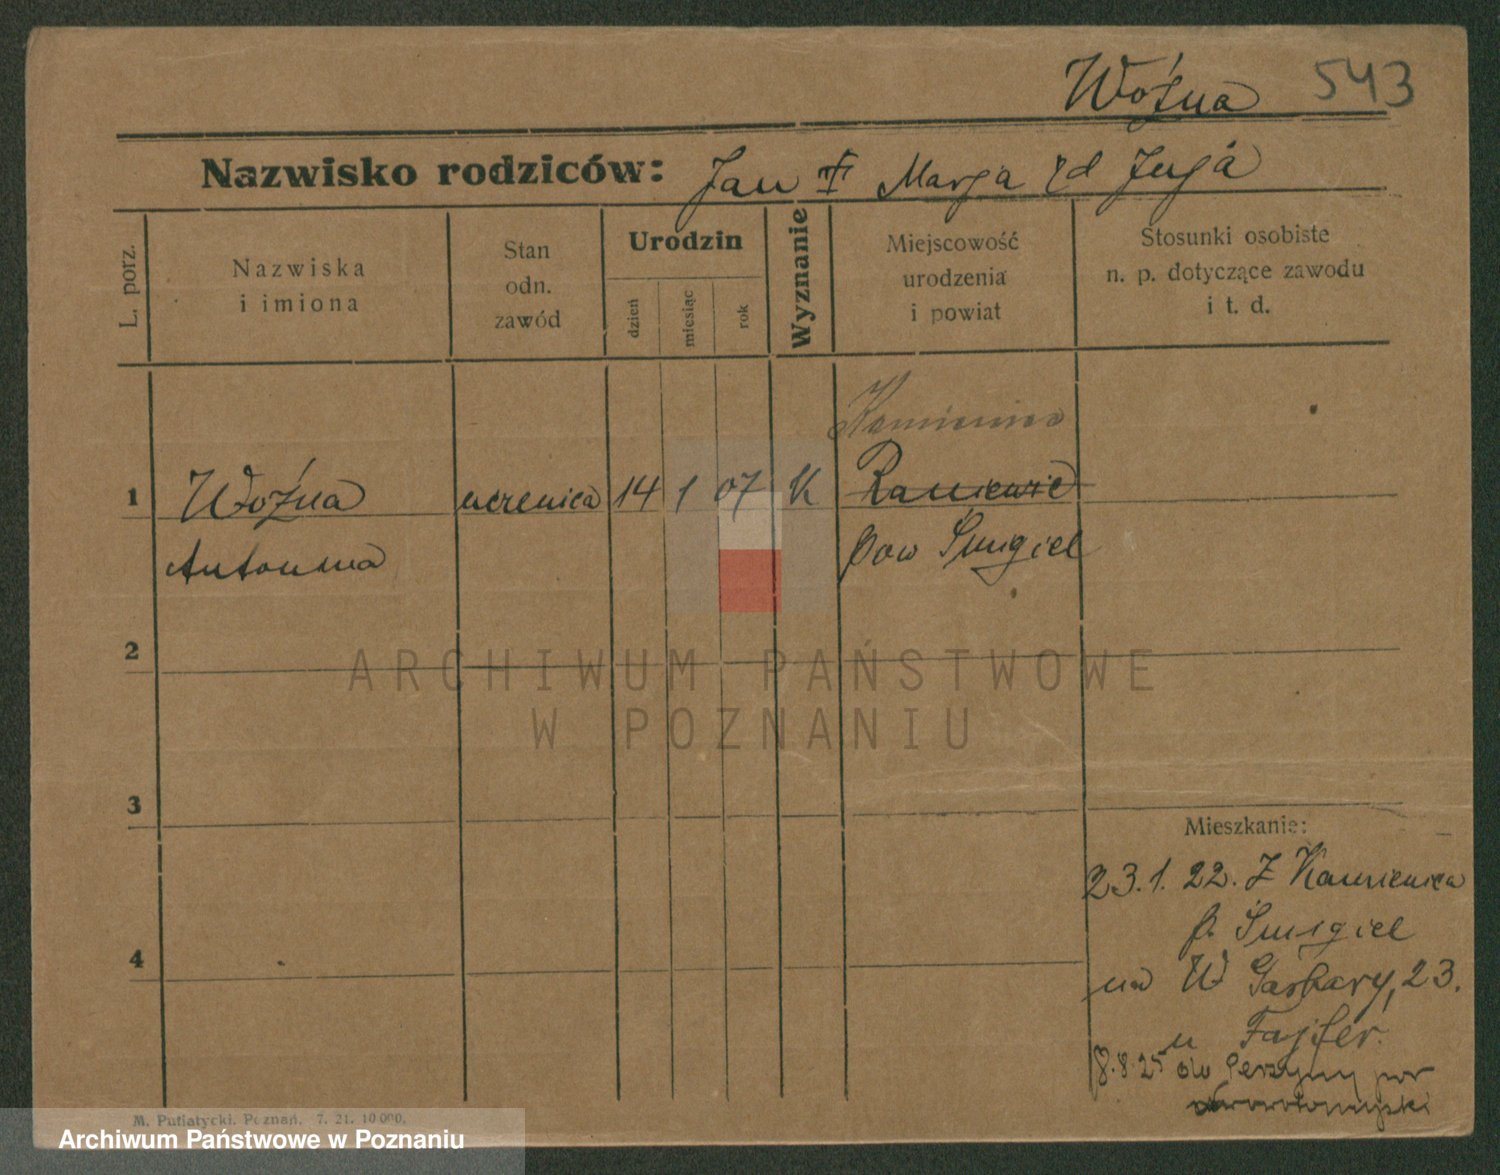 Woźna 543
Nazwisko rodziców: Jan Marja
L. porz.
Nazwiska
i imiona
Stan
odn.
zawód
Urodzin
dzień
miesiąc
rok
Wyznanie
Miejscowość
urodzenia
i powiat
Stosunki osobiste
n. p. dotyczące zawodu
i t. d.
Kamienica
1 Woźna uczenica 14 1 07 K
Antonina pow Śmigiel
2
ARCHIWUM PAŃSTWOWE
W POZNANIU
3
Mieszkanie:
23.1.22. Z Kamienica
p. Śmigiel
4
na W Garbary, 23.
u Fajfer.
8.8.25 do
M. Putiatycki, Poznań. 7. 21. 10 000.
Archiwum Państwowe w Poznaniu